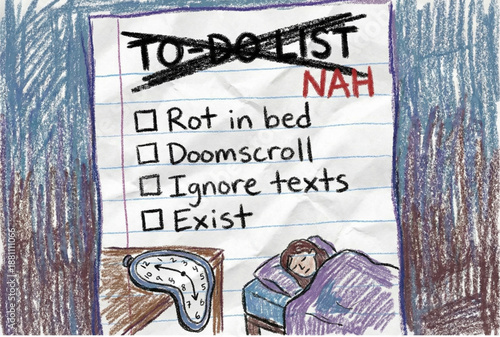 TO-DO LIST
NAH
Rot in bed
Doomscroll
Ignore texts
Exist
Adobe Stock | #1881111066